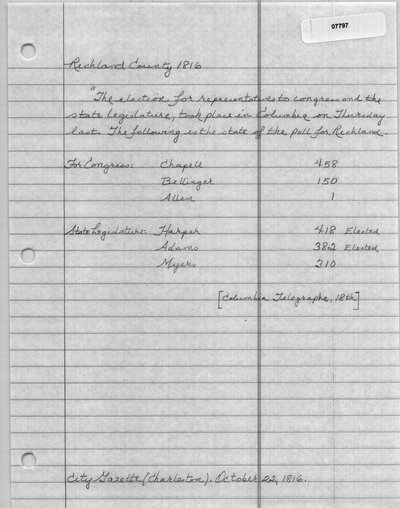 07797
Richland County 1816
"The election for representatives to congress and the
state legislature, took place in Columbia on Thursday
last. The following is the state of the poll for Richland.
For Congress: Chapell 458
Bellinger 150
Allen 1
State Legislature: Harper 418 Elected
Adams 382 Elected
Myers 310
[Columbia Telegraphe, 18th]
City Gazette (Charleston). October 22, 1816.